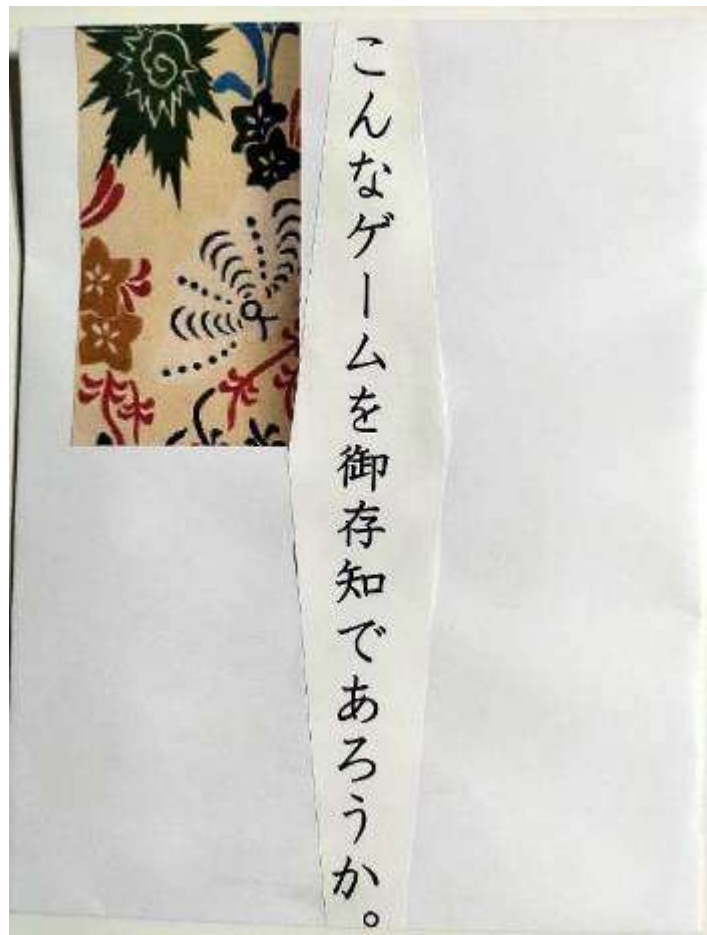 こんなゲームを御存知であろうか。